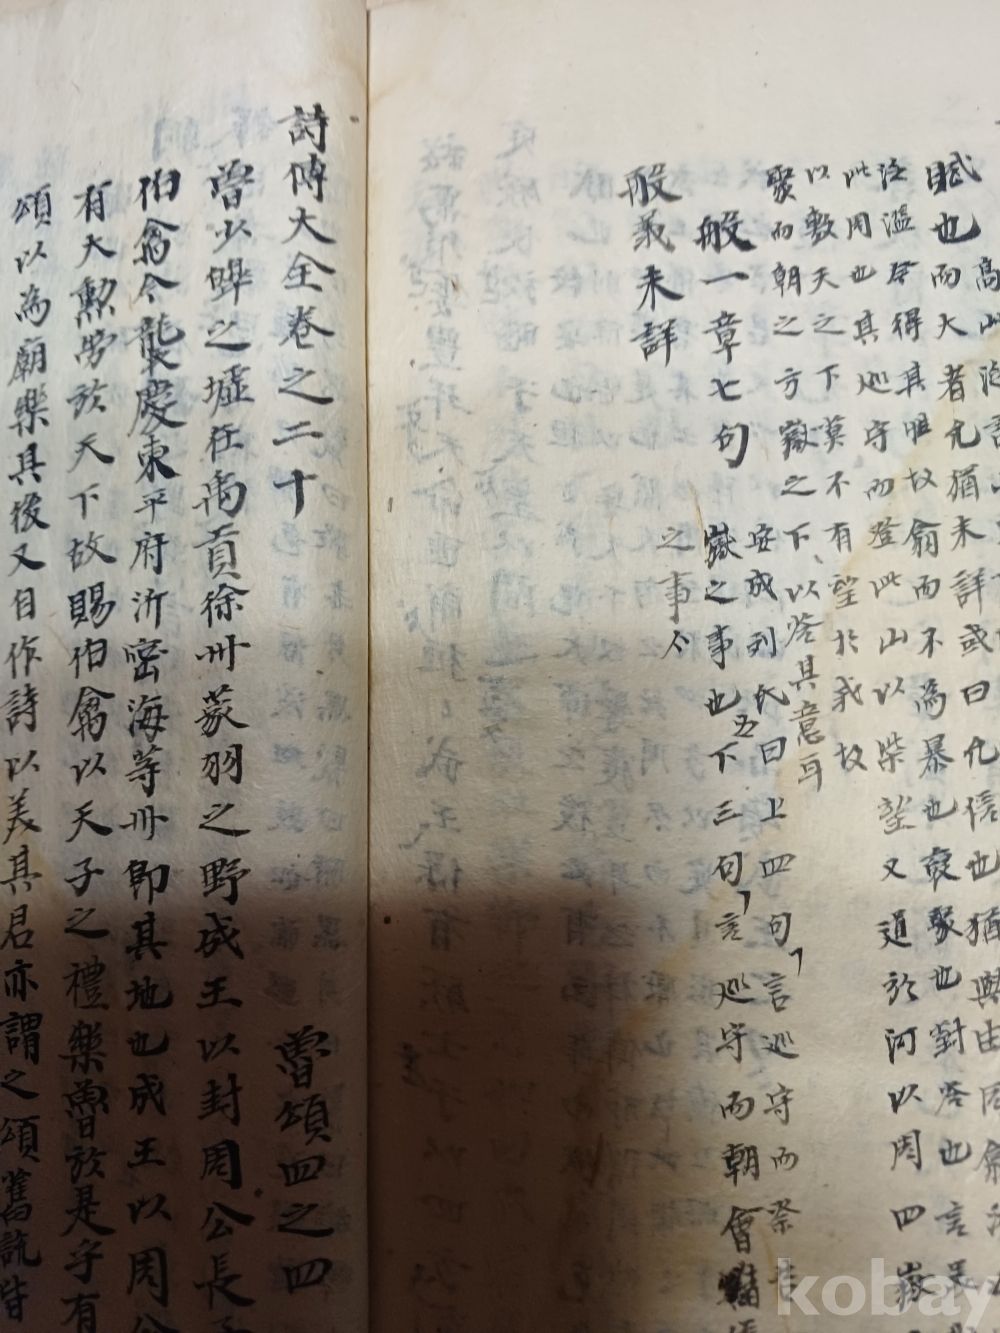 賦也高山
而大者允猶未詳或曰允信也猶與由同翕
泛濫登得其
故翕而不為暴也裒聚也對答也言
此周也其巡守而登此山以柴望又道於河以周四嶽
以敷天之下莫不有望於我故
聚而朝之方嶽之下以答其意耳
般一章七句
安成刘氏曰上四句言巡守而祭告
嶽之事也五下三句言巡守而朝會
之事
般義未詳
詩傳大全卷之二十
魯頌四之四
魯少皞之墟在禹貢徐州蒙羽之野成王以封周公長子
伯禽今襲慶東平府沂密海等州即其地也成王以周公
有大勳勞於天下故賜伯禽以天子之禮樂魯於是乎有
頌以為廟樂其後又自作詩以美其君亦謂之頌舊說皆
kobay